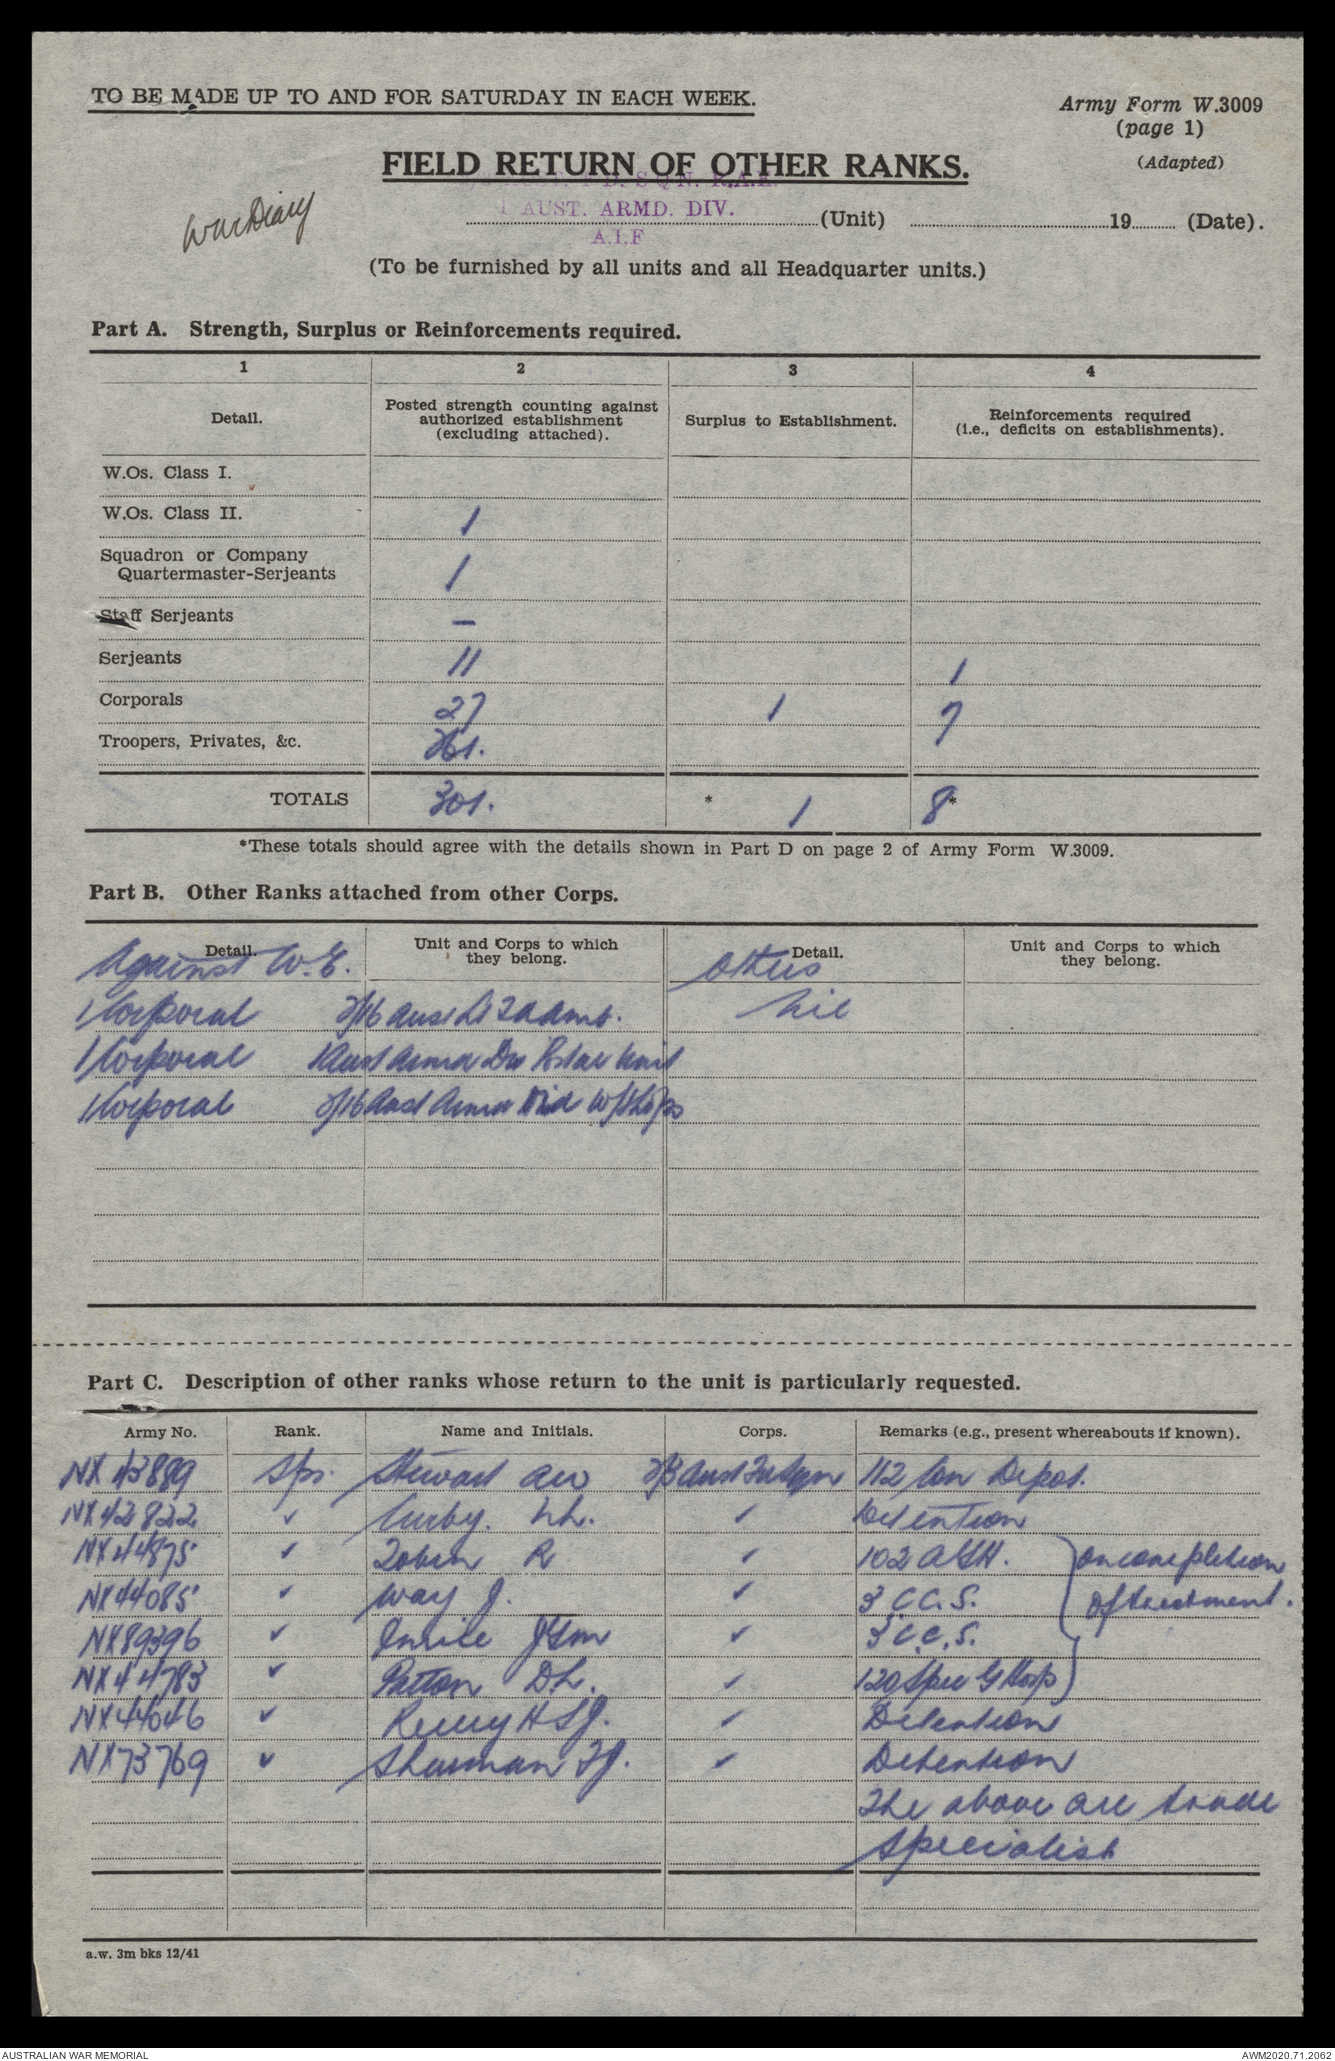 TO BE MADE UP TO AND FOR SATURDAY IN EACH WEEK.
Army Form W.3009
(page 1)
(Adapted)
FIELD RETURN OF OTHER RANKS.
War Diary
1 AUST. ARMD. DIV.
A.I.F
(Unit) 19 (Date).
(To be furnished by all units and all Headquarter units.)
Part A. Strength, Surplus or Reinforcements required.
1 2 3 4
Detail. Posted strength counting against authorized establishment (excluding attached). Surplus to Establishment. Reinforcements required (i.e., deficits on establishments).
W.Os. Class I.
W.Os. Class II. 1
Squadron or Company
Quartermaster-Serjeants 1
Staff Serjeants –
Serjeants 11 1
Corporals 27 1 7
Troopers, Privates, &c. 261.
TOTALS 301. * 1 8*
*These totals should agree with the details shown in Part D on page 2 of Army Form W.3009.
Part B. Other Ranks attached from other Corps.
Detail. Unit and Corps to which they belong. Detail. Unit and Corps to which they belong.
Against W.E. Others
1 Corporal 2/16 Aust Lt Fd Amb. Nil
1 Corporal 1 Aust Armd Div Postal Unit
1 Corporal 2/16 Aust Armd W/Shops
Part C. Description of other ranks whose return to the unit is particularly requested.
Army No. Rank. Name and Initials. Corps. Remarks (e.g., present whereabouts if known).
NX43889 Spr. Stewart AW 2/3 Aust 112 Con Depot.
NX42822 ✓ Curby. ✓ Detention
NX44875 ✓ Tobin R ✓ 102 AGH. } on completion
NX44085 ✓ Way J. ✓ 3 C.C.S. of treatment.
NX89396 ✓ ✓ 3 C.C.S.
NX44783 ✓ Patton D.L. ✓ 120 Spec G Hosp }
NX44046 ✓ ✓ Detention
NX73769 ✓ Sherman ✓ Detention
The above are trade
specialist
a.w. 3m bks 12/41
AUSTRALIAN WAR MEMORIAL
AWM2020.71.2062